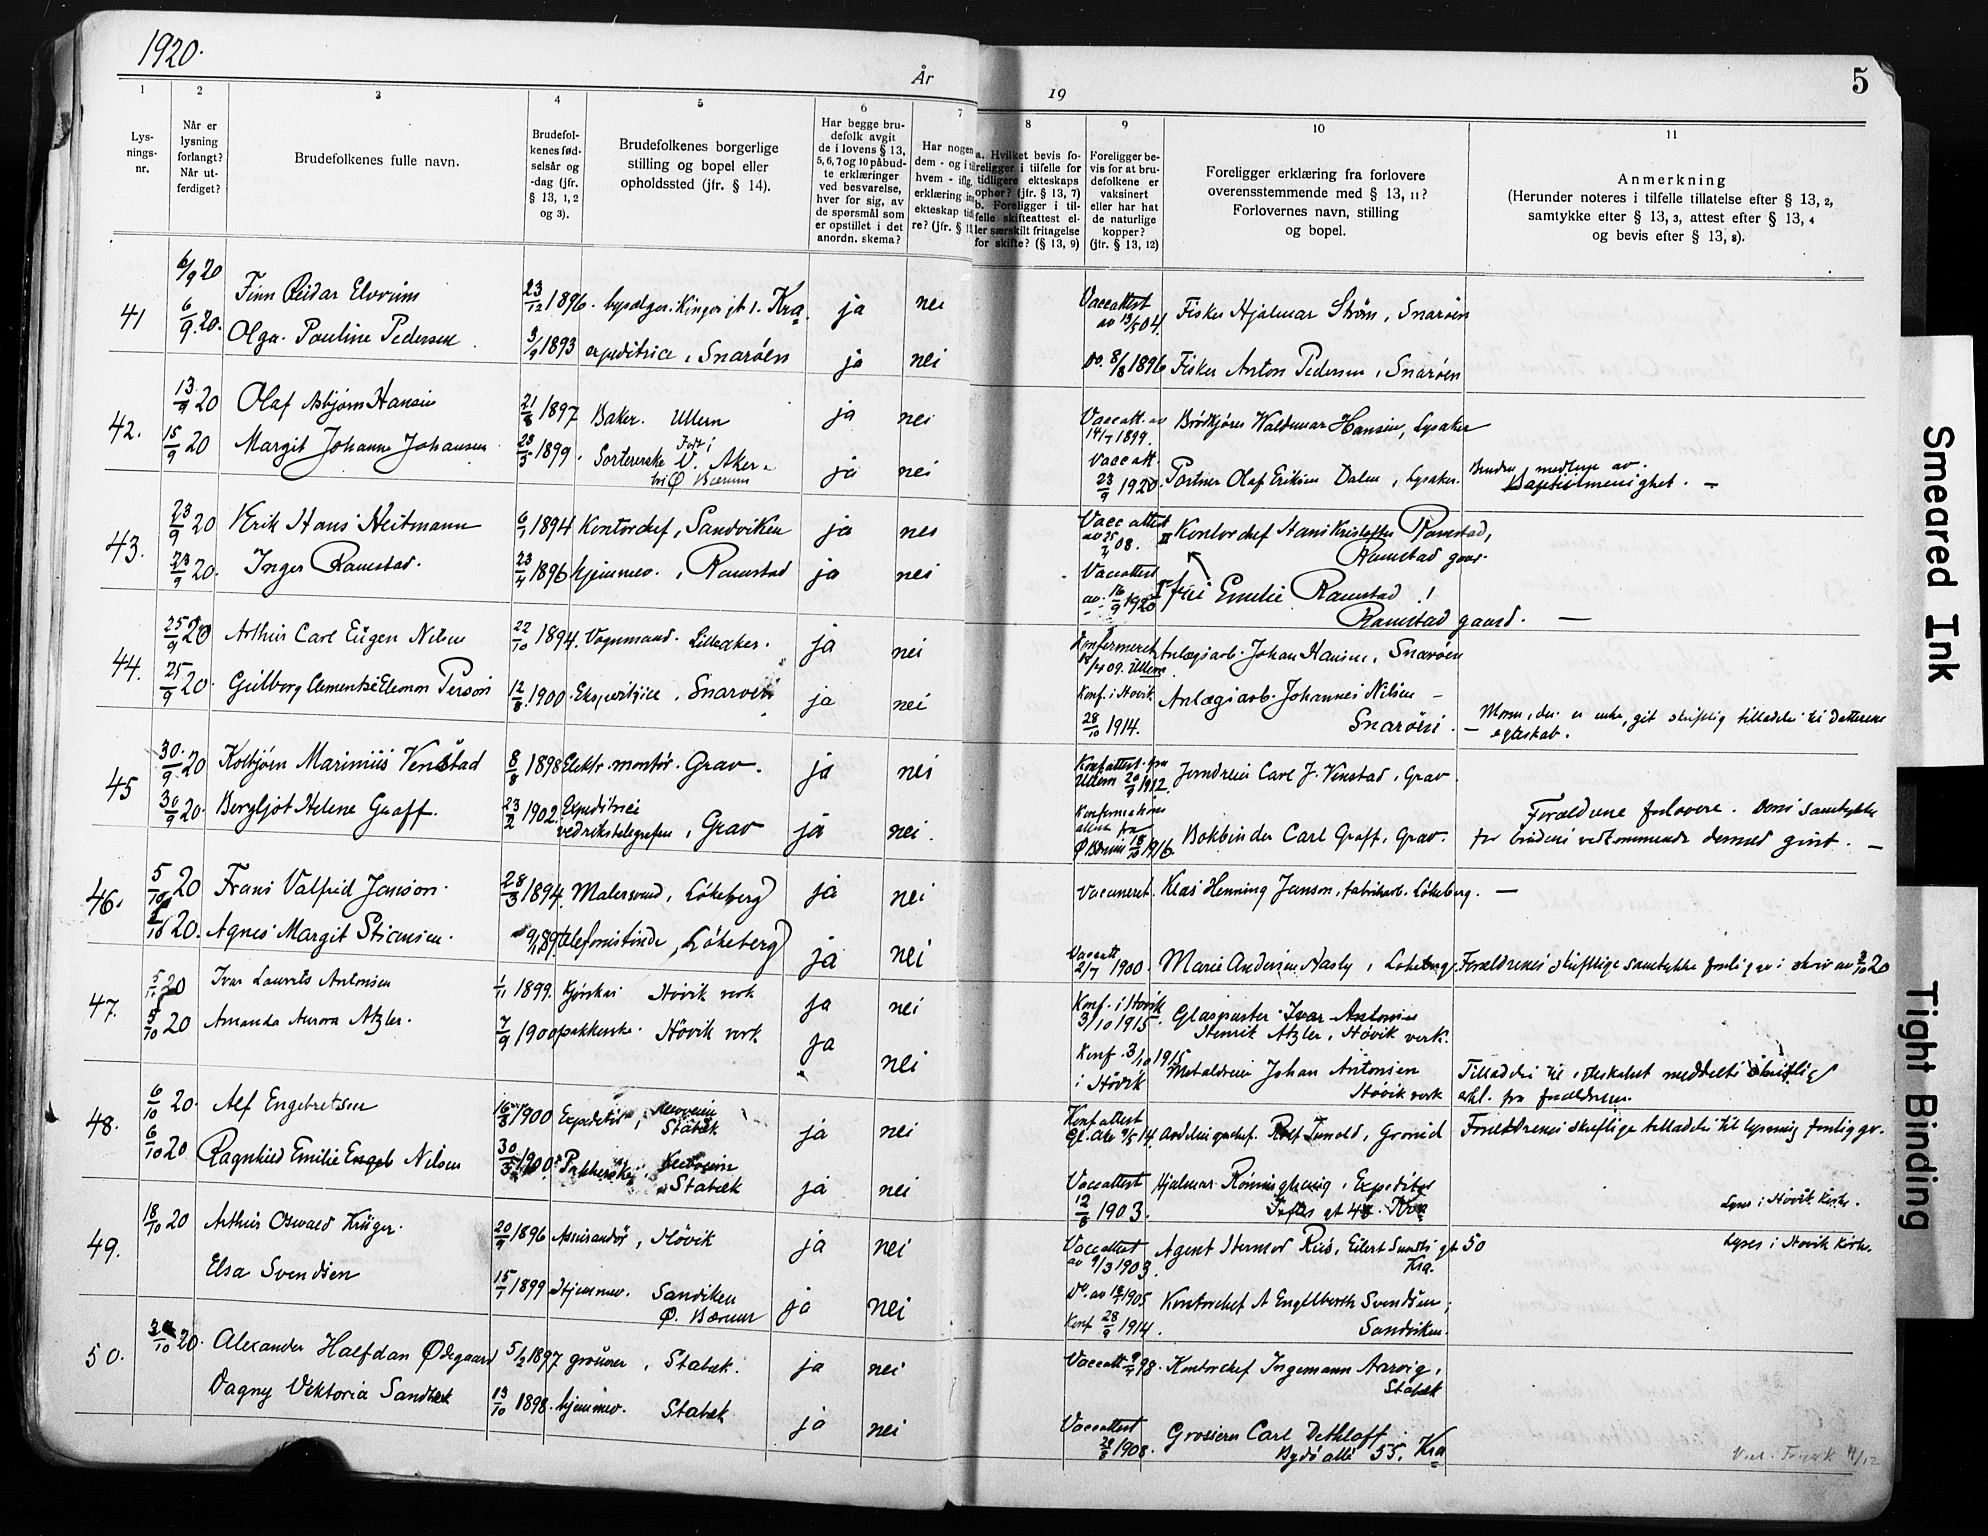 1920.
År
19
5
1
2
3
4
5
6
7
8
9
10
11
Lys-
nings-
nr.
Når er
lysning
forlangt?
Når ut-
ferdiget?
Brudefolkenes fulle navn.
Brudefol-
kenes fød-
selsår og
-dag (jfr.
§ 13, 1, 2
og 3).
Brudefolkenes borgerlige
stilling og bopel eller
opholdssted (jfr. § 14).
Har begge bru-
defolk avgit
de i lovens § 13,
5, 6, 7 og 10 påbud-
te erklæringer
ved besvarelse,
hver for sig, av
de spørsmål som
er opstillet i det
anordn. skema?
Har nogen
dem - og i
hvem - iflg.
erklæring
ekteskap
re? (jfr. §
a. Hvilket bevis fo-
religger i tilfelle for
tidligere ekteskaps
ophør? (jfr. § 13, 7)
b. Foreligger i til-
felle skifteattest el-
ler særskilt fritagelse
for skifte? (§ 13, 9)
Foreligger be-
vis for at bru-
defolkene er
vaksinert
eller har hat
de naturlige
kopper?
(jfr. § 13, 12)
Foreligger erklæring fra forlovere
overensstemmende med § 13, 11?
Forlovernes navn, stilling
og bopel.
Anmerkning
(Herunder noteres i tilfelle tillatelse efter § 13, 2,
samtykke efter § 13, 3, attest efter § 13, 4
og bevis efter § 13, 8).
41
6/9 20
Finn Reidar Elvrum
23/12 1896. Kra.
ja
nei
Vaccattest
av 13/5 04.
Fisker Hjalmar Strøm, Snarøen
6/9 20.
Olga Pauline Pedersen
3/9 1893
expeditrice, Snarøen
ja
nei
Do. 8/8 1896
Fisker Anton Pedersen, Snarøen
42.
13/9 20
Olaf Asbjørn Hansen
21/8 1897
Baker. Ullern
ja
nei
Vaccatt. av
14/7 1899.
Brødkjører Waldemar Hansen, Lysaker
15/9 20
Margit Johanne Johansen
23/5 1899.
Sortererske
Født i
V. Aker.
bri Ø Bærum
ja
nei
Vaccatt.
23/9 1920.
Portner Olaf Eriksen Dalen, Lysaker.
Bruden medlem av
Baptistmenighet. —
43.
23/9 20
Erik Hans Heitmann
6/1 1894
Kontorchef, Sandviken
ja
nei
Vacc attest
av 25/2 08.
II Kontorchef Hans Kristoffer Ramstad,
Ramstad gaar.
23/9 20.
Inger Ramstad.
23/4 1896
hjemmev., Ramstad
ja
nei
Vaccattest
av 16/9 1920
I frue Emelie Ramstad!
Ramstad gaard. —
44.
25/9 20
Arthur Carl Eugen Nilsen
22/10 1894.
Vognmand. Lilleaker.
ja
nei
Konfirmeret
18/4 09. Ullern
Anlægsarb. Johan Hansen, Snarøen
25/9 20.
Gulborg Clementse Eleonor Person
12/8 1900.
Ekspeditrice, Snarøen
ja
nei
Konf. i Høvik
28/10 1914.
Anlægsarb. Johannes Nilsen —
Snarøen.
— Moren, der er enke, git skriftlig tilladelse til datterens
egteskab.
45
30/9 20
Kolbjørn Marinius Venstad
8/8 1898
Elektr. montør. Grav.
ja
nei
Konfattest. fra
Ullern 20/9 1912.
Jerndreier Carl J. Venstad, Grav.
30/9 20.
Bergljot Helene Graff.
23/2 1902.
Expeditrice
ved rikstelegrafen, Grav
ja
nei.
Konfirmations
attest fra
Ø Bærum 18/10 1916.
Bokbinder Carl Graff, Grav.
Forældrene forlovere. Deres samtykke
for brudens vedkommende dermed givet. —
46.
5/10 20
Frans Valfrid Janson.
28/3 1894
Malersvend, Løkeberg
ja
nei
Vaccineret.
Klas Henning Janson, fabrikarb. Løkeberg. —
5/10 20.
Agnes Margit Stiansen.
telefonistinde, Løkeberg
ja
nei
Vaccatt
2/7 1900.
Marie Andersen Nasby, Løkeberg
Forældrenes skriftlige samtykke foreligger i skriv av 3/10 20
47.
5/10 20
Ivar Laurits Antonsen
1/11 1899.
Kjørskar Høvik verk
ja
nei
Konf. i Høvik
3/10 1915.
Glaspuster Ivar Antonsen
Henrik Atzler, Høvik verk.
5/10 20
Amanda Aurora Atzler.
7/9 1900
pakkerske. Høvik verk
ja
nei
Konf. 3/10 1915
i Høvik
Metaldreier Johan Antonsen
Høvik verk
Tilladelse til egteskabet meddelt skriftlig
erkl. fra forældrene.
48.
6/10 20.
Alf Engebretsen
16/3 1900
Expeditør,
Stabæk
ja
nei
Konfattest
Gl. Aker 9/5 14.
Avdelingschef. Rolf Tunold, Grorud
Forældrenes skriftlige tilladelse til lysning foreligger.
6/10 20
Ragnhild Emilie Engeb Nilsen
30/3 1900.
Pakkerske,
Stabæk
ja
nei
Vaccattest
12/8 1903.
Hjalmar Rønningherig, Expeditør
Toftes gt 48. Kra
Lyses i Høvik kirke.
49.
18/10 20
Arthur Oswald Krüger.
20/9 1896
Assurandør, Høvik
ja
nei
Vaccattest
av 9/3 1903.
Agent Hermod Riis, Eilert Sundts gt 50
Kra.
Lyses i Høvik kirke.
Elsa Svendsen
15/1 1899
Hjemmev. Sandviken
Ø. Bærum
ja
nei
Do. av 18/7 1905
Konf 28/9 1914.
Kontorchef A Englberth Svendsen,
Sandviken.
50.
30/10 20.
Alexander Halfdan Ødegaard
5/2 1897
grosserer, Stabæk.
ja
nei
Vaccatt 9/7 98.
Kontorchef Ingemann Aarvig,
Stabæk
Dagny Viktoria Sandbæk
13/10 1898.
hjemmev. Stabæk
ja
nei
Vaccattest
28/8 1908.
Grosserer Carl Dethloff
Bygdø allé 55, Kra
Smeared Ink
Tight Binding